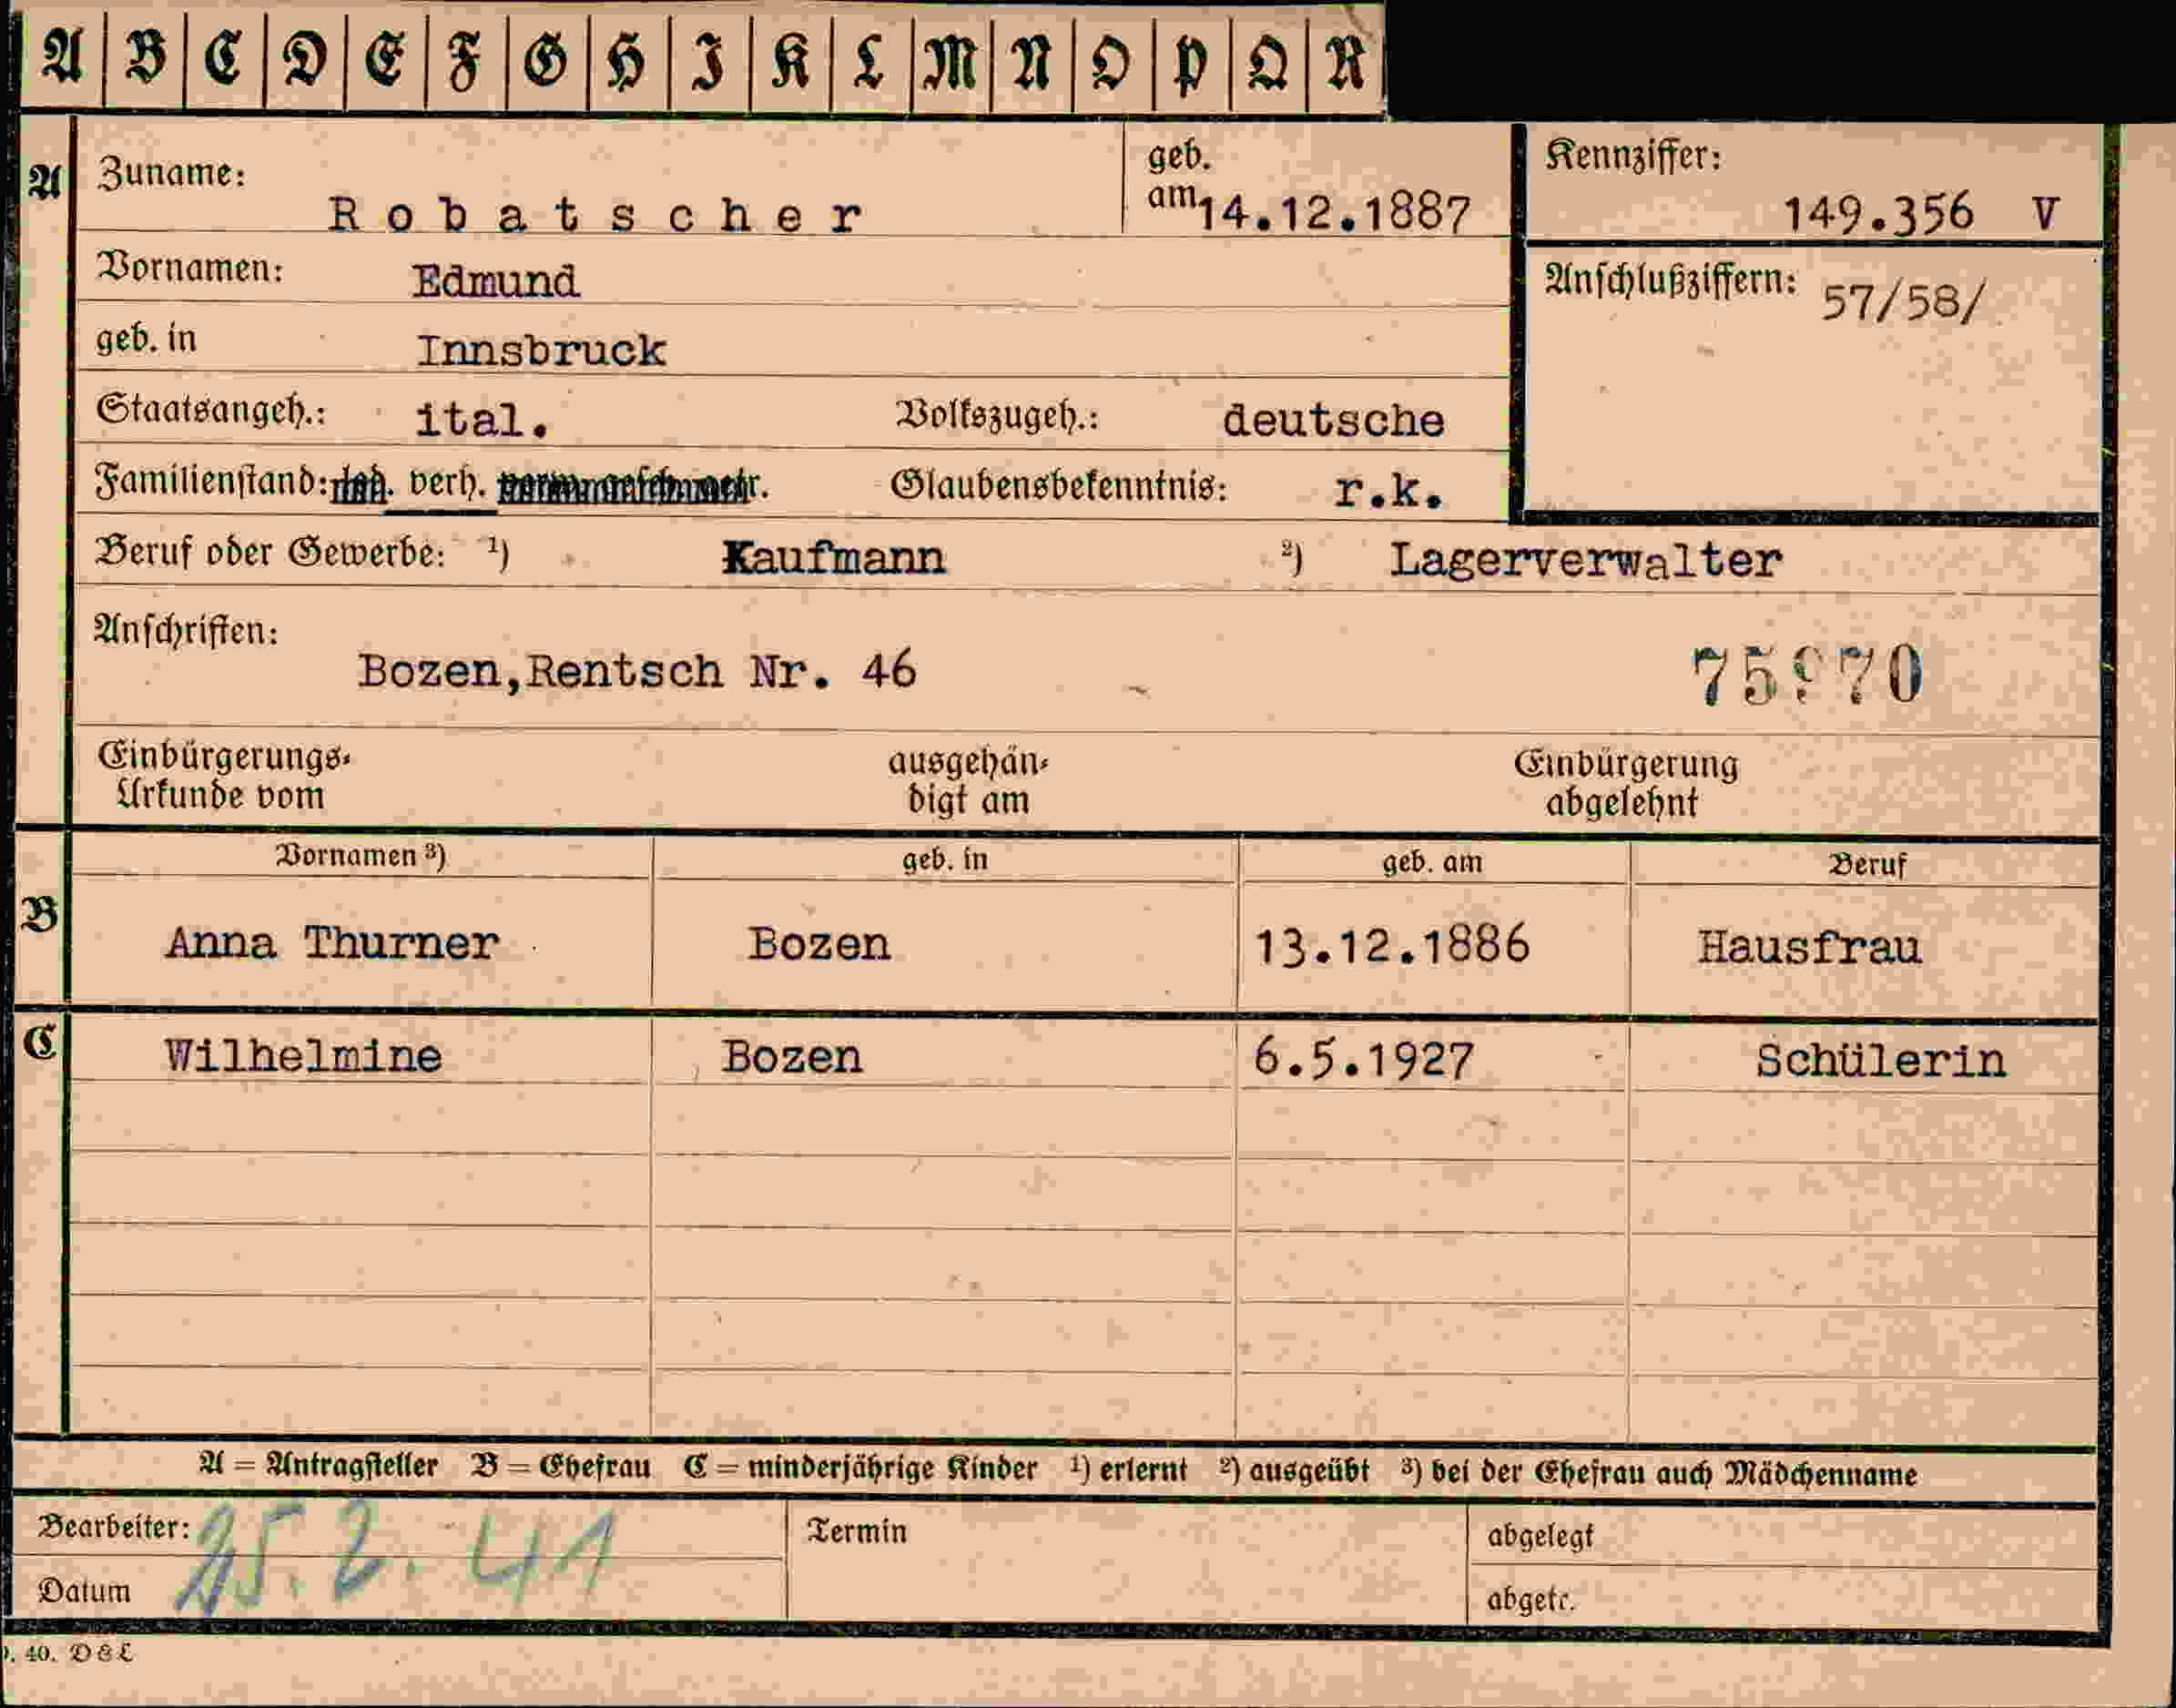 A B C D E F G H I K L M N O P Q R
A Zuname: Robatscher geb. am 14.12.1887 Kennziffer: 149.356 V
Vornamen: Edmund Anschlußziffern: 57/58/
geb. in Innsbruck
Staatsangeh.: ital. Volkszugeh.: deutsche
Familienstand: verh. Glaubensbekenntnis: r.k.
Beruf oder Gewerbe: 1) Kaufmann 2) Lagerverwalter
Anschriften:
Bozen,Rentsch Nr. 46
Einbürgerungs- ausgehän- Einbürgerung
Urkunde vom digt am abgelehnt
Vornamen 3) geb. in geb. am Beruf
B Anna Thurner Bozen 13.12.1886 Hausfrau
C Wilhelmine Bozen 6.5.1927 Schülerin
A = Antragsteller B = Ehefrau C = minderjährige Kinder 1) erlernt 2) ausgeübt 3) bei der Ehefrau auch Mädchenname
Bearbeiter: 25.2.41 Termin abgelegt
Datum abgetr.
40. D & L